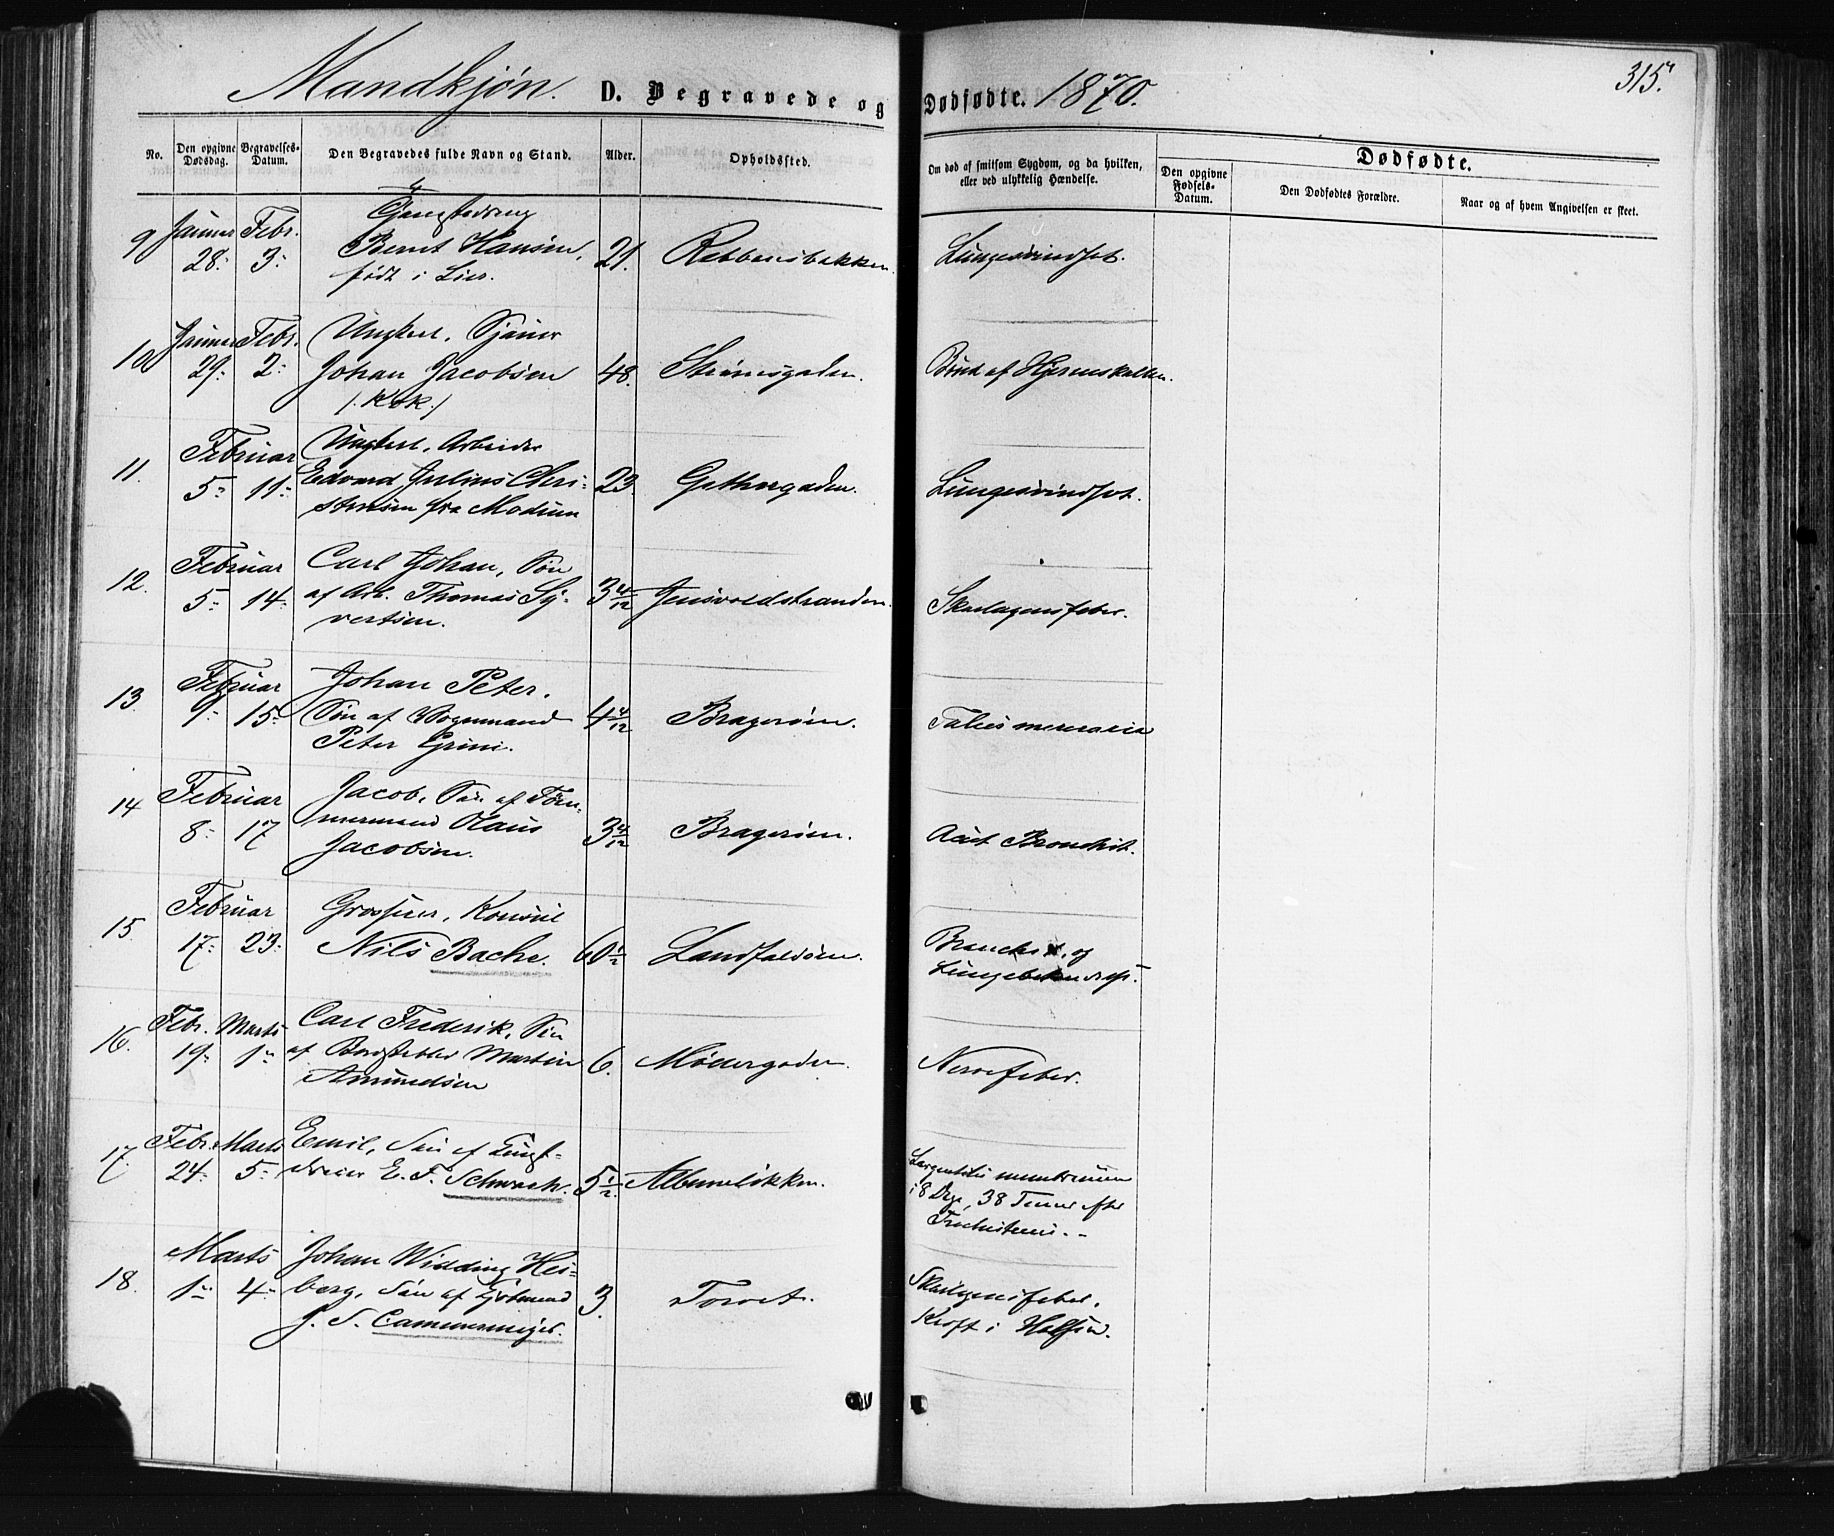 Mandkjøn. D. Begravede og Dødfødte. 1870. 315.
No. Den opgivne Dødsdag. Begravelses-Datum. Den Begravedes fulde Navn og Stand. Alder. Opholdssted. Om død af smitsom Sygdom, og da hvilken, eller ved ulykkelig Hændelse. Dødfødte.
Den opgivne Fødsels-Datum. Den Dødfødtes Forældre. Naar og af hvem Angivelsen er skeet.
9 Januar Febr.
28. 3. Bernt Hansen, 21. Lungesvindsot.
født i Lier.
10 Januar Febr. Ungkarl, Sjauer
29. 2. Johan Jacobsen 48. Strømsgaden.
/. Kok./
11. Februar Ungkarl, Arbeider
5. 11. Edvard Julius Chri- 23. Lungesvindsot.
stensen fra Modum
12. Februar Carl Johan, Søn
5. 14. af Arb. Thomas Sy- 3 4/12 Jensvoldstranden. Skarlagensfeber.
vertsen.
13. Februar Johan Peter.
9. 15. Søn af Vognmand 4 4/12 Bragerøen.
Peter Grini.
14 Februar Jacob, Søn af Tøm-
8. 17 mermand Olaus 3 4/12 Bragerøen. Acut Bronchit.
Jacobsen.
15. Februar Grosserer, Konsul
17. 23. Nils Bache. 60 1/2 Landfaldøen. Bronchit, og
Lungebetændelse.
16. Febr. Marts Carl Frederik, Søn
19. 1. af Martin 6. Møllergaden. Nervefeber.
Amundsen
17. Febr. Marts Emil, Søn af Kunst-
24. 5. dreier E. F. Schwack. 5 1/2. Albumsløkken.
i 8 Dage, 38 Timer efter
18. Marts Johan Widding Hei-
1. 4. berg, Søn af 3. Torvet. Skarlagensfeber.
J. S. Cammermeyer. Kroft i Halsen.